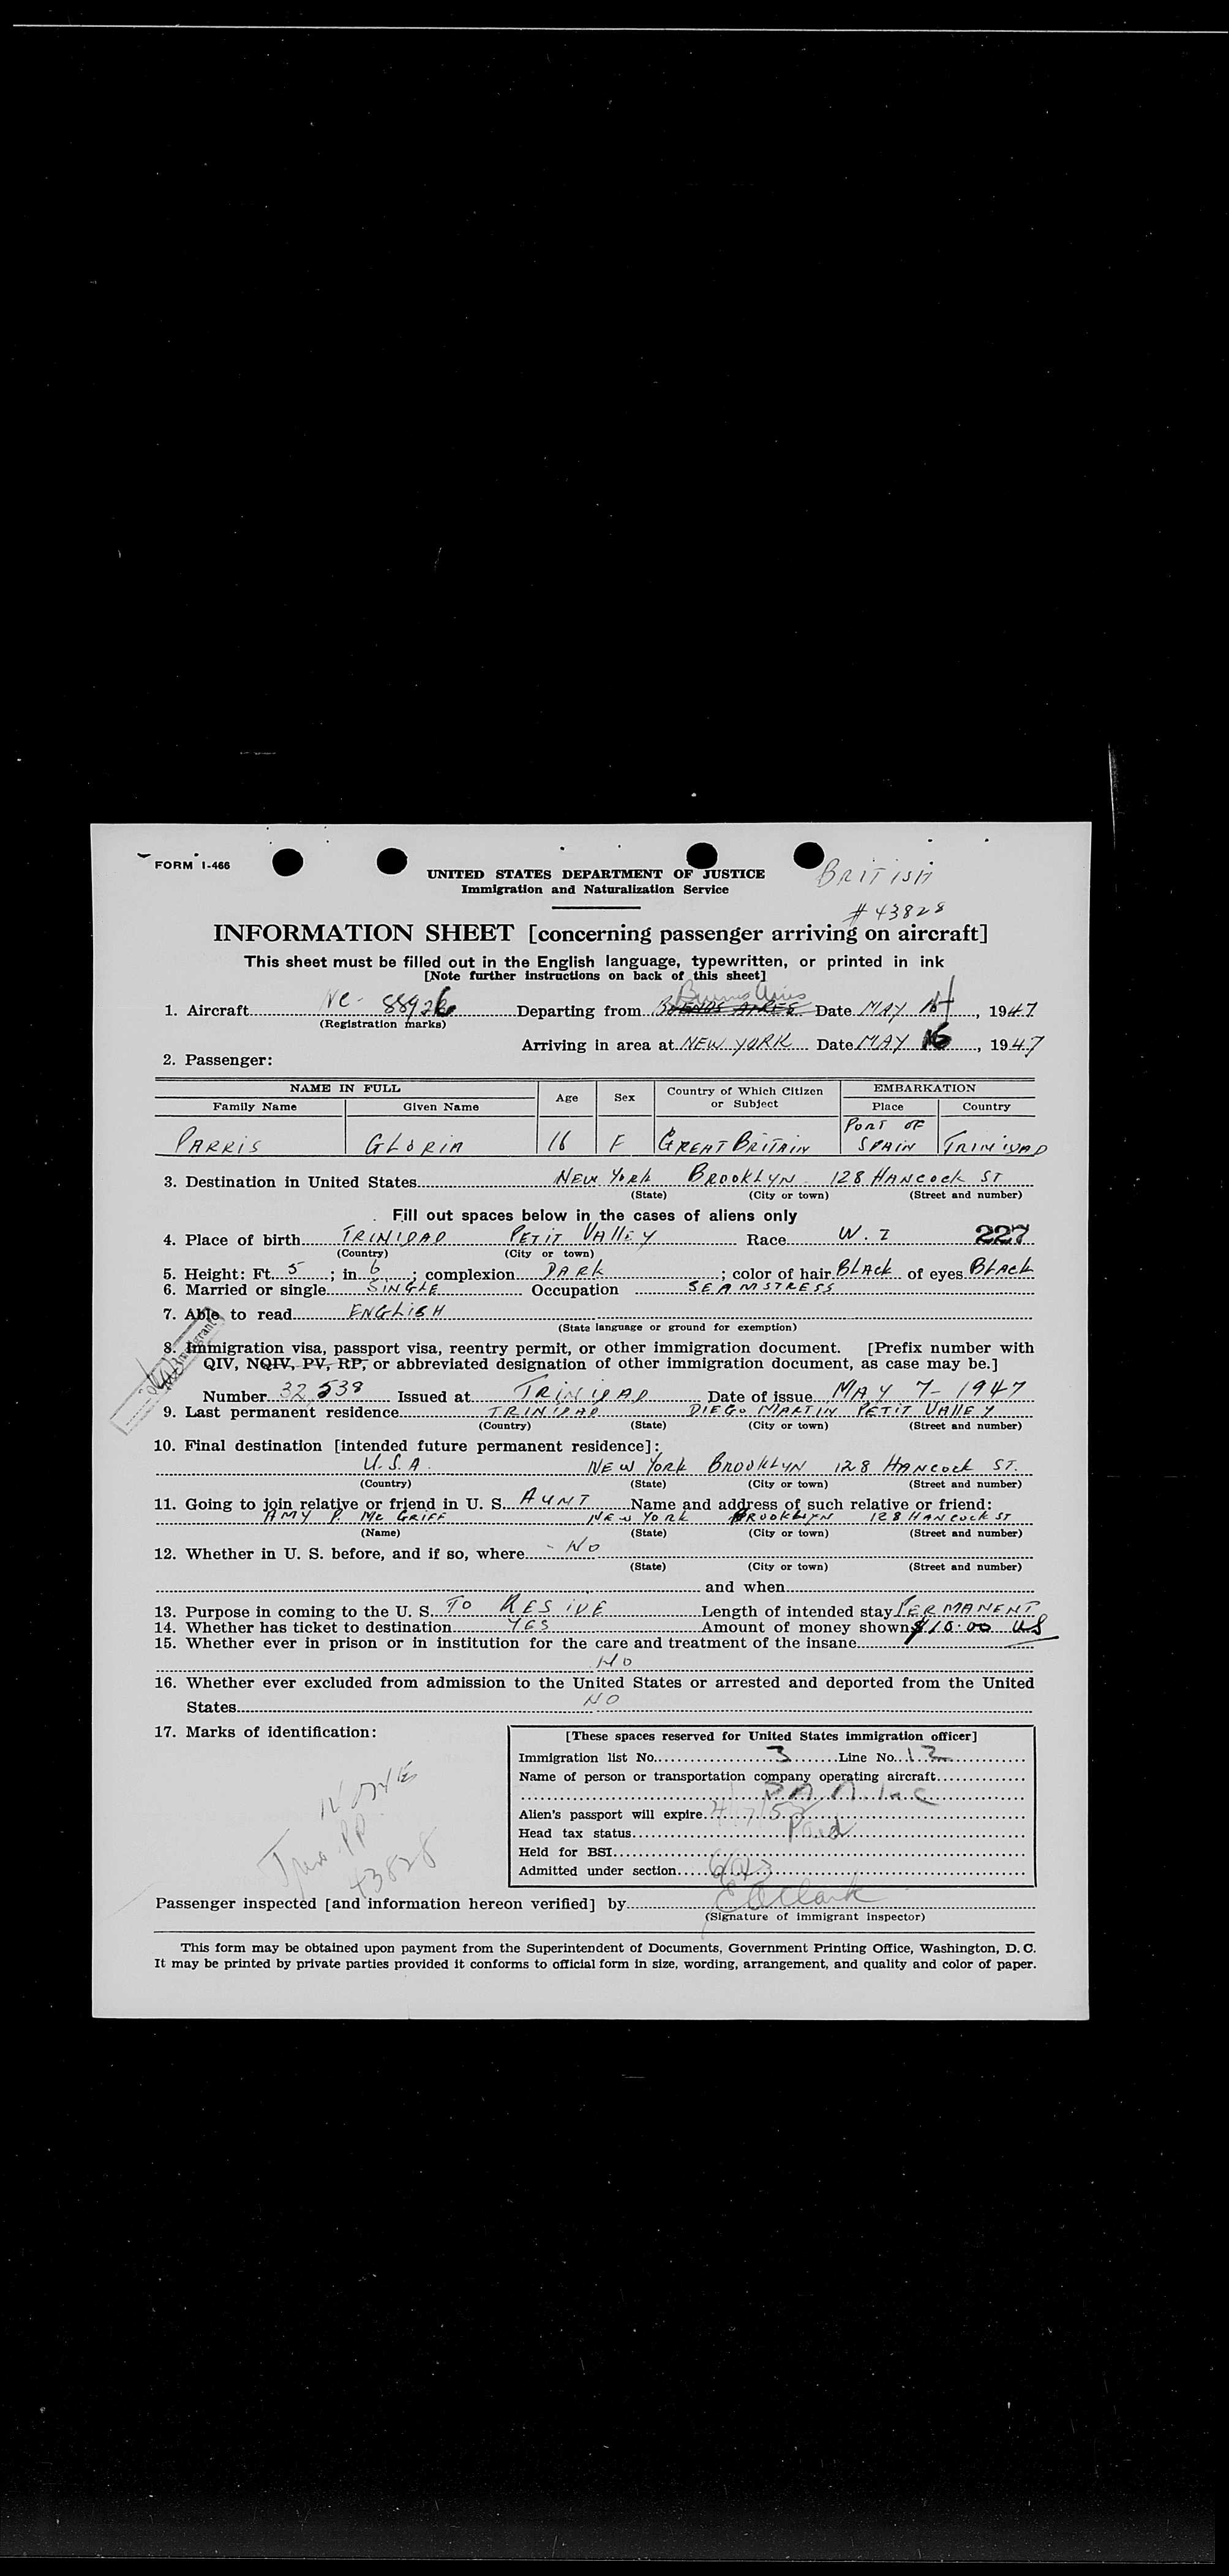 FORM I-466
UNITED STATES DEPARTMENT OF JUSTICE
Immigration and Naturalization Service
BRITISH
# 43828
INFORMATION SHEET [concerning passenger arriving on aircraft]
This sheet must be filled out in the English language, typewritten, or printed in ink
[Note further instructions on back of this sheet]
Buenos Aires
1. Aircraft NC- 88926 Departing from BUENOS AIRES Date MAY 14, 1947
(Registration marks)
Arriving in area at NEW YORK Date MAY 16, 1947
2. Passenger:
NAME IN FULL Age Sex Country of Which Citizen or Subject EMBARKATION
Family Name Given Name Place Country
PARRIS GLORIA 16 F GREAT BRITAIN PORT OF SPAIN TRINIDAD
3. Destination in United States NEW YORK BROOKLYN 128 HANCOCK ST
(State) (City or town) (Street and number)
Fill out spaces below in the cases of aliens only
4. Place of birth TRINIDAD PETIT VALLEY Race W. I 227
(Country) (City or town)
5. Height: Ft. 5; in 6; complexion DARK; color of hair BLACK of eyes BLACK
6. Married or single SINGLE Occupation SEAMSTRESS
7. Able to read ENGLISH
(State language or ground for exemption)
8. Immigration visa, passport visa, reentry permit, or other immigration document. [Prefix number with
QIV, NQIV, PV, RP, or abbreviated designation of other immigration document, as case may be.]
Number 32,538 Issued at TRINIDAD Date of issue MAY 7- 1947
9. Last permanent residence TRINIDAD DIEGO MARTIN PETIT VALLEY
(Country) (State) (City or town) (Street and number)
10. Final destination [intended future permanent residence]:
U.S.A. NEW YORK BROOKLYN 128 HANCOCK ST.
(Country) (State) (City or town) (Street and number)
11. Going to join relative or friend in U. S. AUNT Name and address of such relative or friend:
AMY P. McGRIFF NEW YORK BROOKLYN 128 HANCOCK ST
(Name) (State) (City or town) (Street and number)
12. Whether in U. S. before, and if so, where - NO
(State) (City or town) (Street and number)
and when
13. Purpose in coming to the U. S. TO RESIDE Length of intended stay PERMANENT
14. Whether has ticket to destination YES Amount of money shown $10.00 US
15. Whether ever in prison or in institution for the care and treatment of the insane
NO
16. Whether ever excluded from admission to the United States or arrested and deported from the United
States NO
17. Marks of identification:
NONE
PP
43828
[These spaces reserved for United States immigration officer]
Immigration list No. 3 Line No. 12
Name of person or transportation company operating aircraft
P A A Inc
Alien's passport will expire
Head tax status Paid
Held for BSI
Admitted under section
Passenger inspected [and information hereon verified] by E O Clark
(Signature of immigrant inspector)
This form may be obtained upon payment from the Superintendent of Documents, Government Printing Office, Washington, D. C.
It may be printed by private parties provided it conforms to official form in size, wording, arrangement, and quality and color of paper.